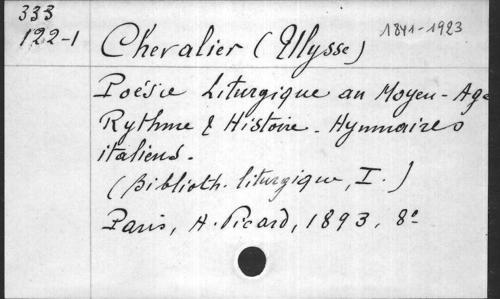 333
122-1
Chevalier (Ulysse) 1841-1923
Poésie Liturgique au Moyen-Age
Rythme & Histoire - Hymnaires
italiens.
(Biblioth. liturgique, I.)
Paris, A. Picard, 1893, 8°